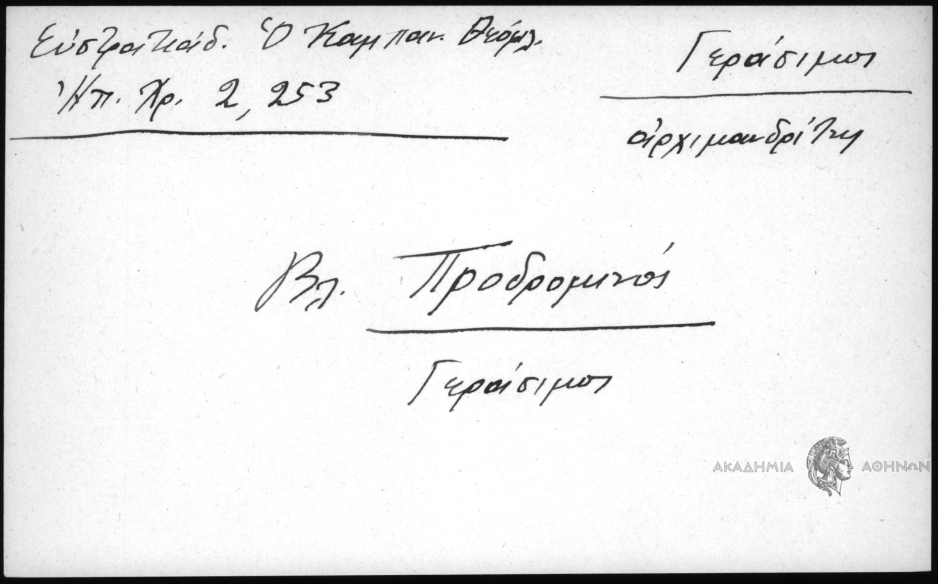 Εὐστρατιάδ. Ὁ Καμπαν. Θεόφιλ.
Ἠπ. Χρ. 2, 253
Γεράσιμος
ἀρχιμανδρίτης
Βλ. Προδρομινός
Γεράσιμος
ΑΚΑΔΗΜΙΑ ΑΘΗΝΩΝ